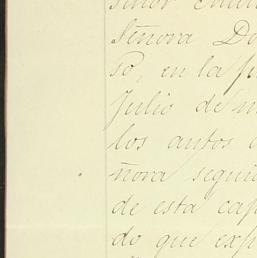 Señora Do
so, en la p
Julio de m
los autos
ñora segui
de esta cap
do que exp